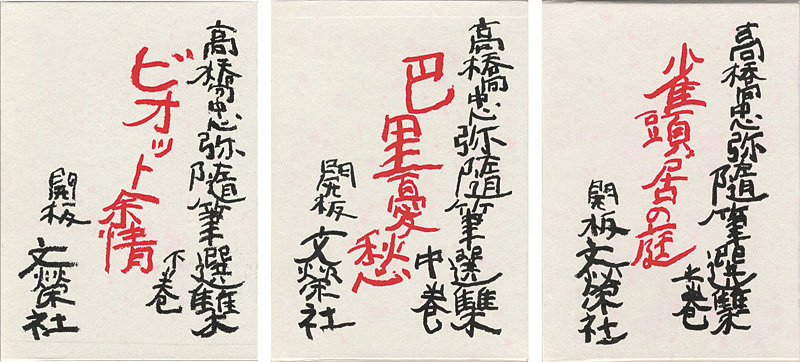 高橋忠弥隨筆選集
上巻
雀頭居の庭
開板 文榮社
高橋忠弥隨筆選集
中巻
巴里憂愁
開板 文榮社
高橋忠弥隨筆選集
下巻
ビオット余情
開板 文榮社